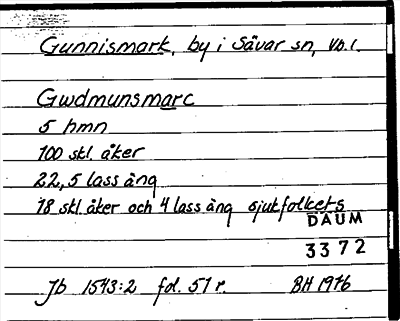 Gunnismark, by i Sävar sn, Vb.l.
Gwdmunsmarc
5 hmn
100 skl. åker
22,5 lass äng
18 skl. åker och 4 lass äng sjukfolkets
DAUM
3372
Jb 1543:2 fol. 51 r. BH 1976